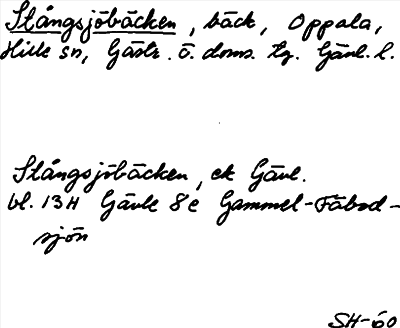 Stångsjöbäcken, bäck, Oppala,
Hille sn, Gästr. ö. doms. tg. Gävl. l.
Stångsjöbäcken, ek Gävl.
bl. 13H Gävle 8e Gammel-Fäbod-
sjön
SH-60